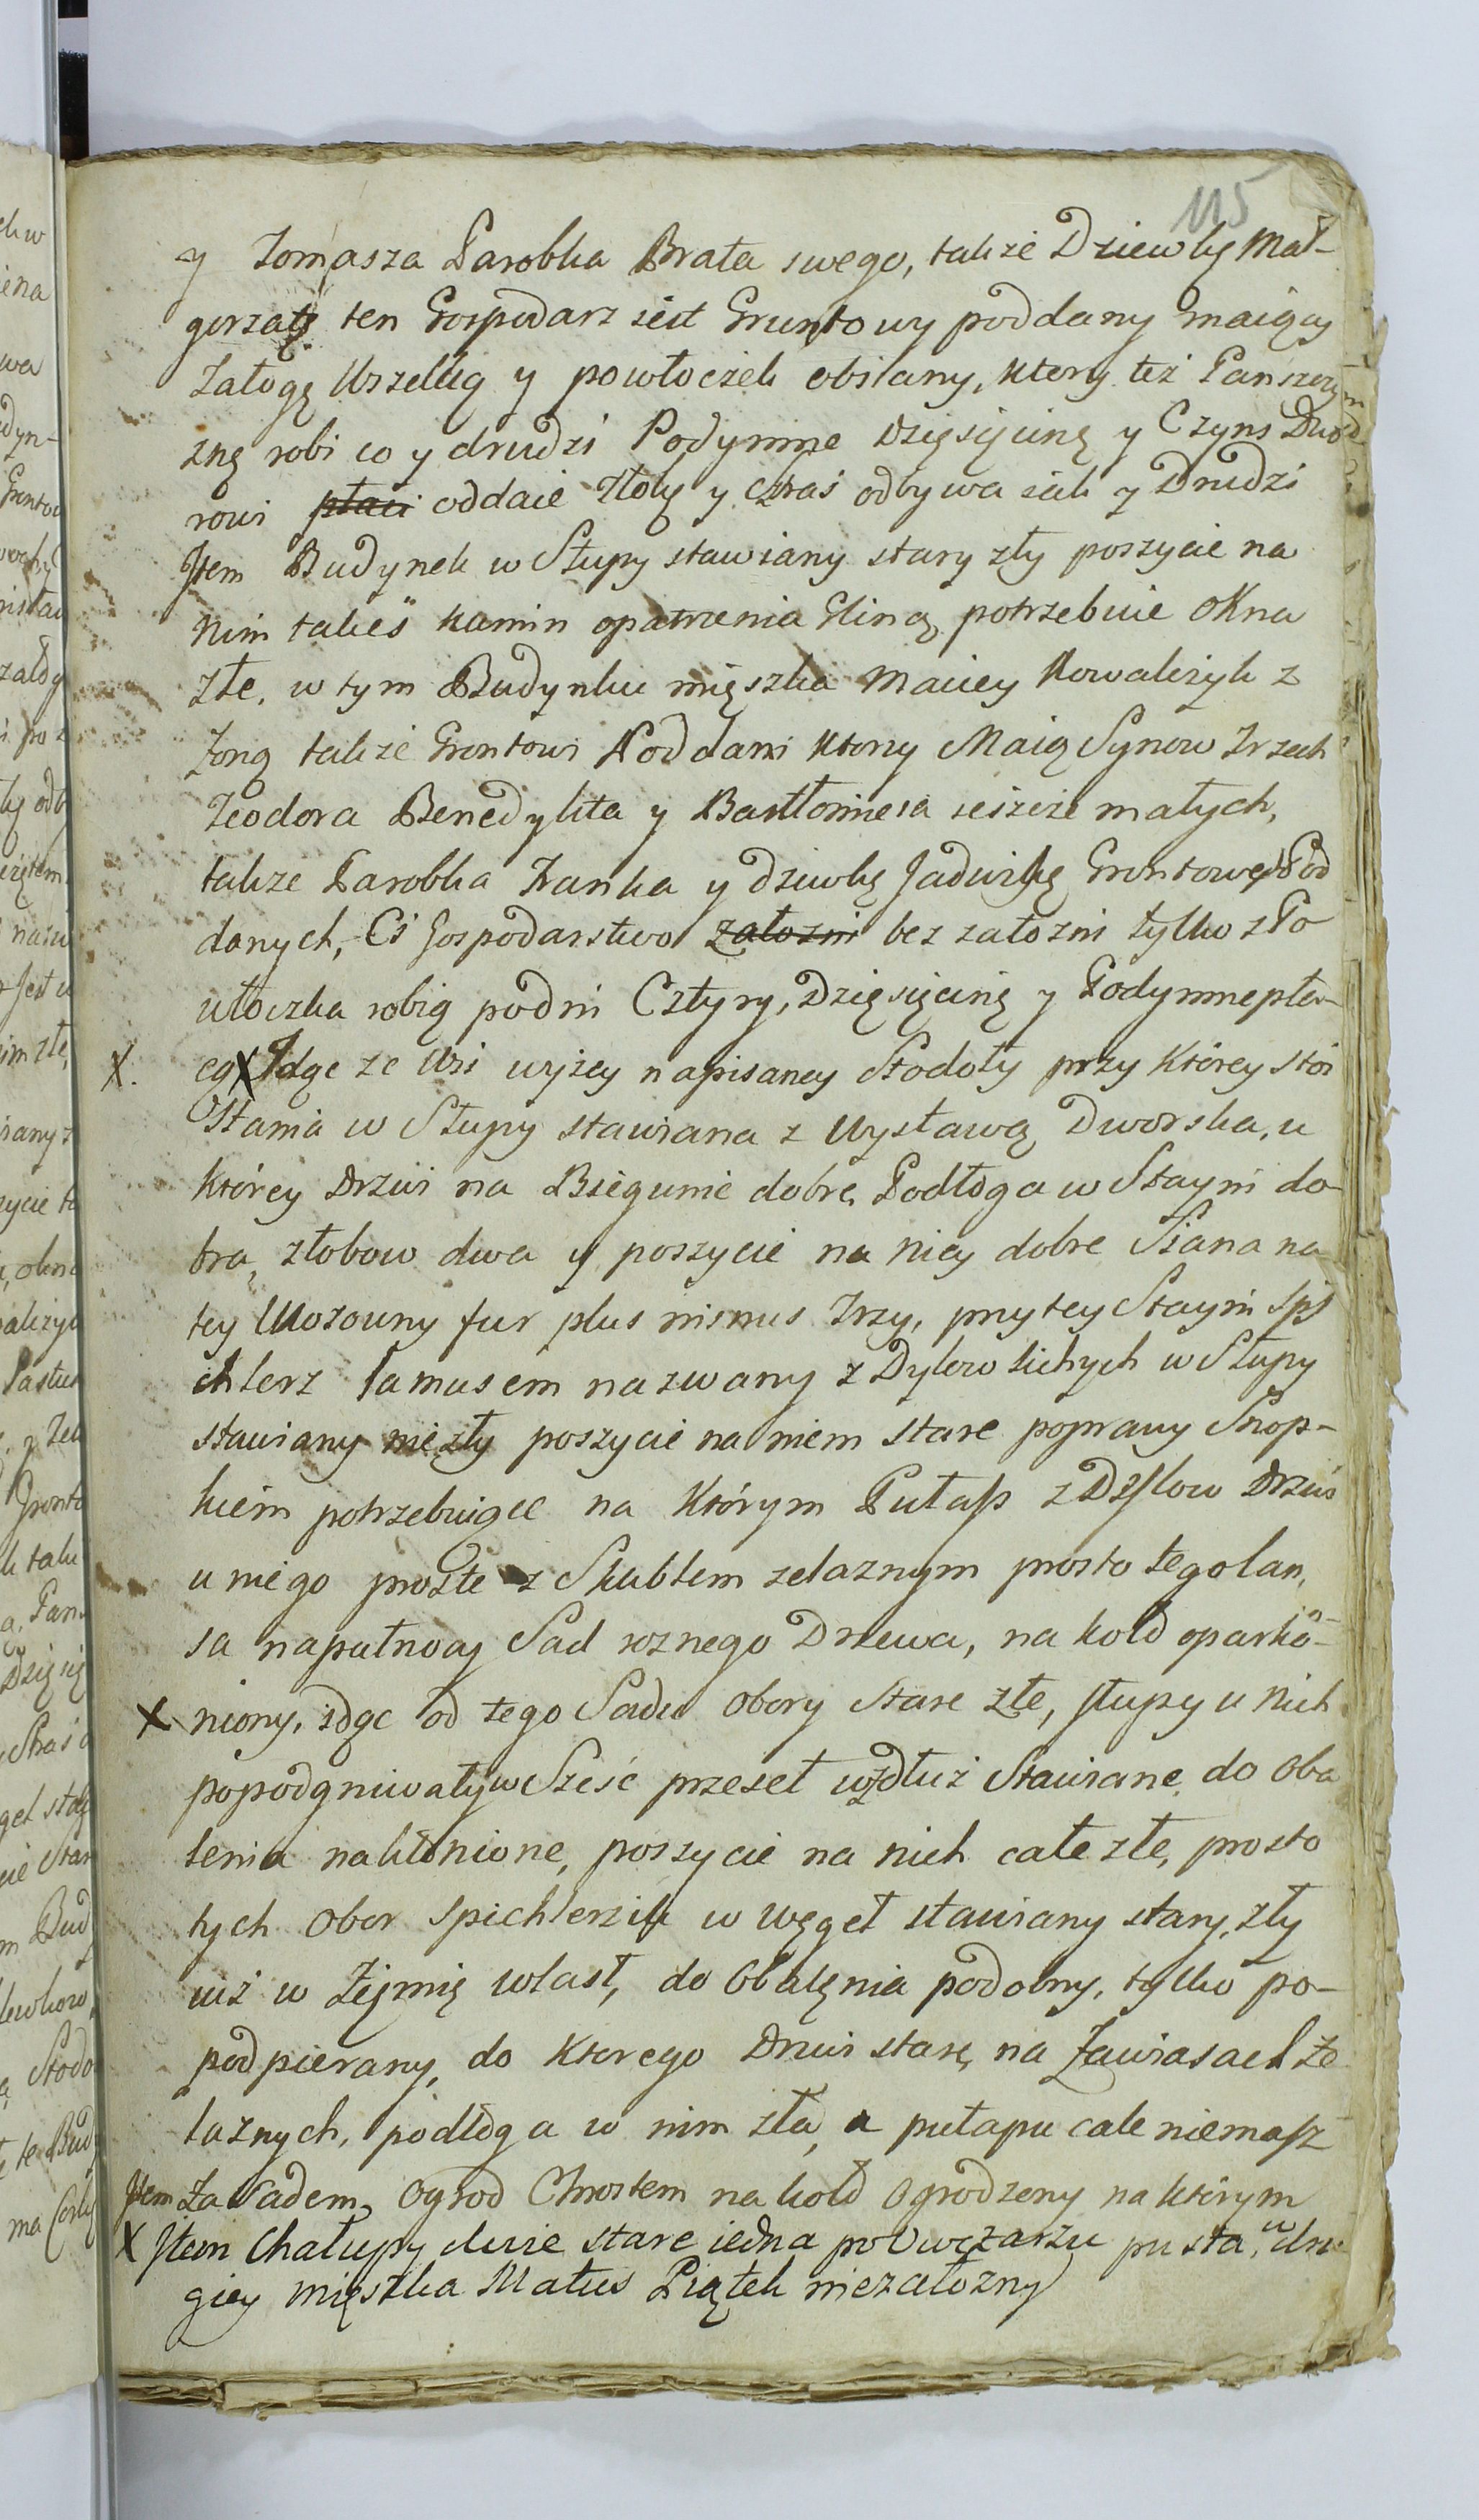 115
y Tomasza Parobka Brata swego, takze Dziewkę Mał-
gorzatę ten Gospodarz iest Gruntowy poddany maiący
Załogę Wszelką y powłoczek obsiany, ktory też Panszczy
znę robi co y drudzi Podymne Dzięsięcinę y Czyns Dwo
rowi płaci oddaie Złoty y Straś odbywa iak y Drudzi
Jtem Budynek w Słupy stawiany stary zły poszycie na
nim takeś kamin opatrzenia Gliną potrzebuie okna
złe, w tym Budynku mięszka Maciey Kowalczyk z
Zoną takze Grontowi Poddani ktory Maią Synow Trzech
Teodora Benedykta y Bartłomieia ieszcze małych,
takze Parobka Iwanka y dziwkę Jadwikę Grontowych Pod
danych, Ci Gospodarstwo załozni bez załozni tylko z Po
włoczka robią podni Cztyry, Dzięsięcinę y Podymne pła-
X. cą X Idąc ze Wsi wyżey napisaney Stodoły przy którey stoi
Stania w Słupy stawiana z Wystawą Dworska, u
którey Drzwi na Biegunie dobre, Podłoga w Stayni do
bra, złobow dwa y poszycie na niey dobre Siana na
tey Wozowny fur plus minus Trzy, przy tey Stayni Spi
chlerz Lamusem nazwany z Dylow lichych w Słupy
stawiany niezły poszycie na niem stare poprawy Snop-
kiem potrzebuiące na którym Pułap z Dylow Drzwi
u niego proste z Skublem zelaznym prosto tego lan,
sa napułnocy Sad roznego Drzewa, na koło oparkó-
X niony, idąc od tego Sadu obory stare złe, słupy u nich
popodgniwały w Sześć przeseł wzdłuż Stawiane, do oba
lenia nakłonione, poszycie na nich całe złe, prosto
tych obor Spichlerzik w węgeł stawiany stary, zły
iuż w Zięmię wlasł, do obalęnia podobny, tylko po-
podpierany, do ktorego Drzwi starę, na Zawiasach że
laznych, podłoga w nim zła, a pułapu całe niemasz
Jtem Za Sadem, ogrod Chrostem nakoło ogrodzony na którym
X Jtem Chałupy dwie stare iedna po Owczarzu pusta, w dru
giey mięszka Matus Piątek niezałozny